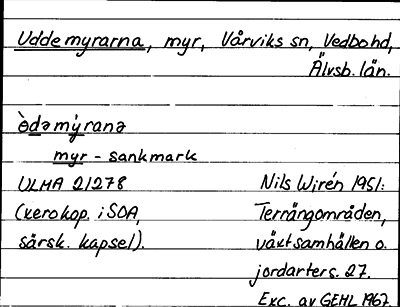 Uddemyrarna, myr, Vårviks sn, Vedbohd,
Älvsb. län.
òdəmỳranə
myr - sankmark
ULMA 21278
(xerokop. i SOA,
särsk. kapsel).
Nils Wirén 1951:
Terrängområden,
växtsamhällen o.
jordarter s. 27.
Exc. av GEHL 1967